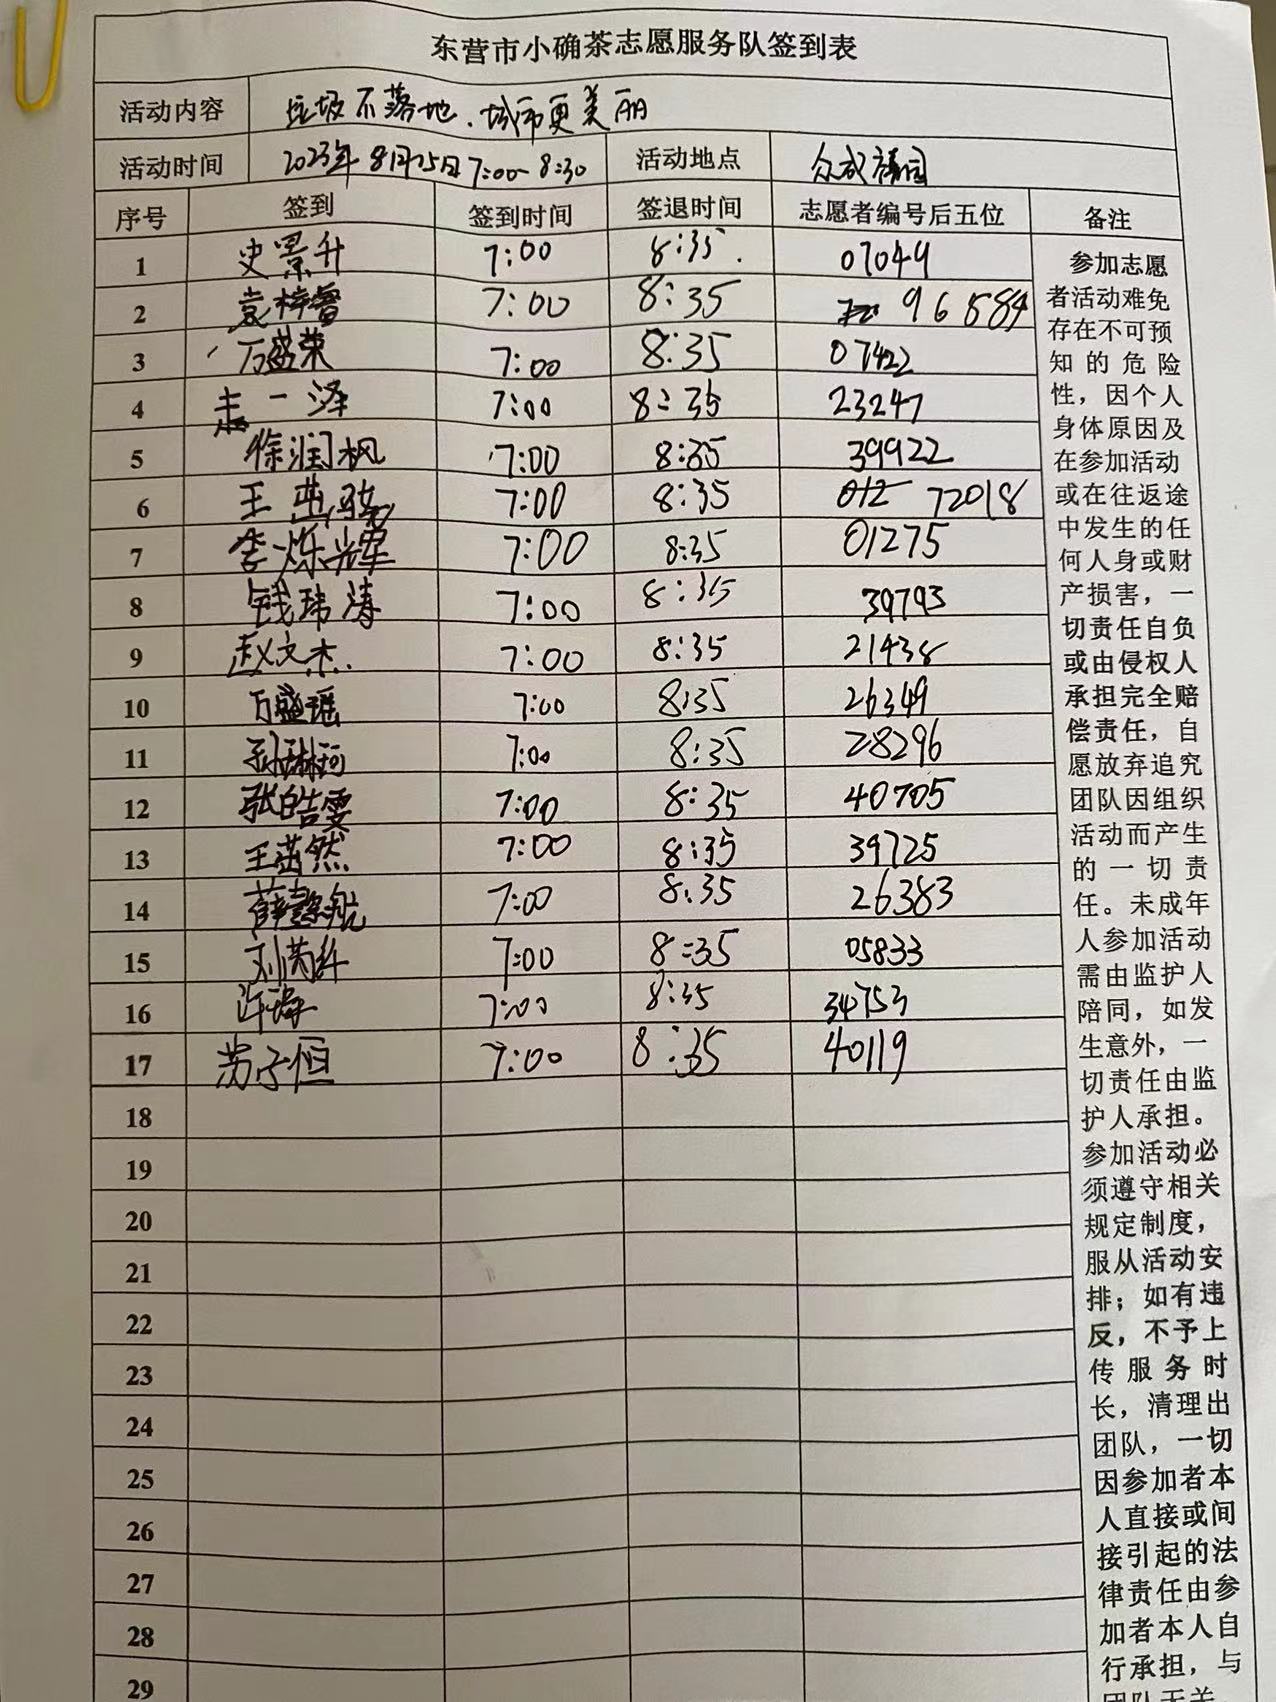 东营市小确茶志愿服务队签到表
活动内容 垃圾不落地、城市更美丽
活动时间 2023年8月25日7:00-8:30 活动地点 众成
序号 签到 签到时间 签退时间 志愿者编号后五位 备注
1 史景升 7:00 8:35. 07049
2 袁梓睿 7:00 8:35 96584
3 万盛荣 7:00 8:35 07422
4 一泽 7:00 8:35 23247
5 徐润枫 7:00 8:35 39922
6 王茁骁 7:00 8:35 012 72018
7 李烁辉 7:00 8:35 01275
8 钱玮涛 7:00 8:35 39793
9 赵文杰 7:00 8:35 21438
10 万盛瑶 7:00 8:35 26349
11 孙琳珂 7:00 8:35 28296
12 张皓雯 7:00 8:35 40705
13 王茁然 7:00 8:35 39725
14 薛懿航 7:00 8:35 26383
15 刘芮 7:00 8:35 05833
16 许 7:00 8:35 34753
17 苏子恒 7:00 8:35 40119
18
19
20
21
22
23
24
25
26
27
28
29
参加志愿
者活动难免
存在不可预
知的危险
性，因个人
身体原因及
在参加活动
或在往返途
中发生的任
何人身或财
产损害，一
切责任自负
或由侵权人
承担完全赔
偿责任，自
愿放弃追究
团队因组织
活动而产生
的一切责
任。未成年
人参加活动
需由监护人
陪同，如发
生意外，一
切责任由监
护人承担。
参加活动必
须遵守相关
规定制度，
服从活动安
排；如有违
反，不予上
传服务时
长，清理出
团队，一切
因参加者本
人直接或间
接引起的法
律责任由参
加者本人自
行承担，与
团队无关